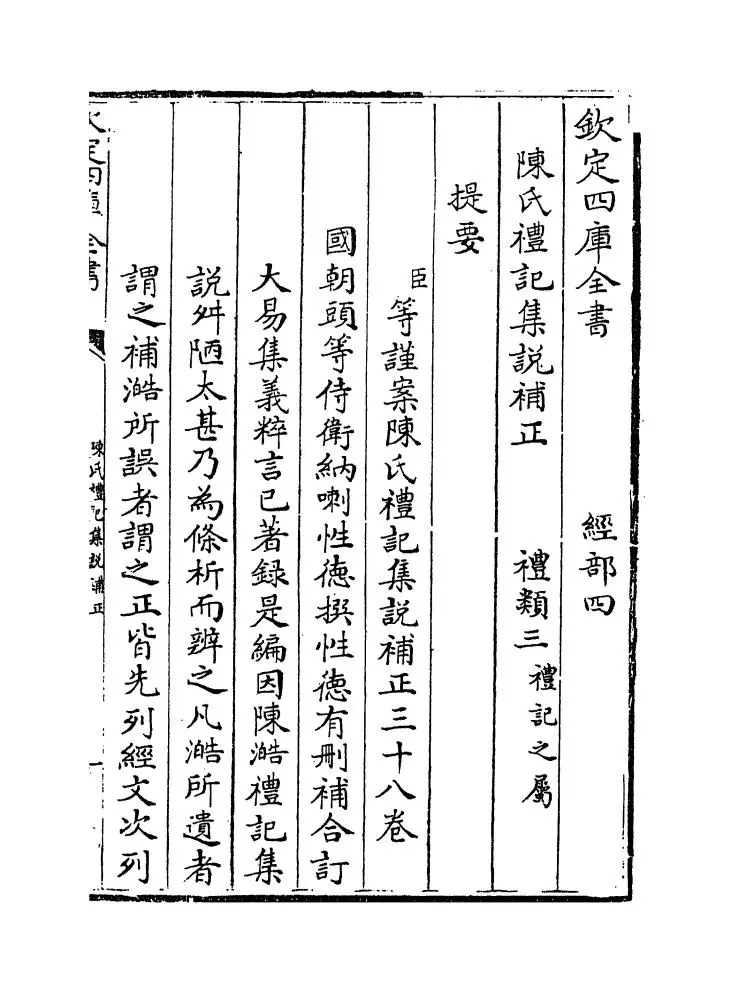 欽定四庫全書　經部四
陳氏禮記集說補正　禮類三禮記之屬
提要
臣等謹案陳氏禮記集說補正三十八卷
國朝頭等侍衛納喇性德撰性德有刪補合訂
大易集義粹言已著録是編因陳澔禮記集
說舛陋太甚乃為條析而辨之凡澔所遺者
謂之補澔所誤者謂之正皆先列經文次列
欽定四庫全書　陳氏禮記集說補正　一